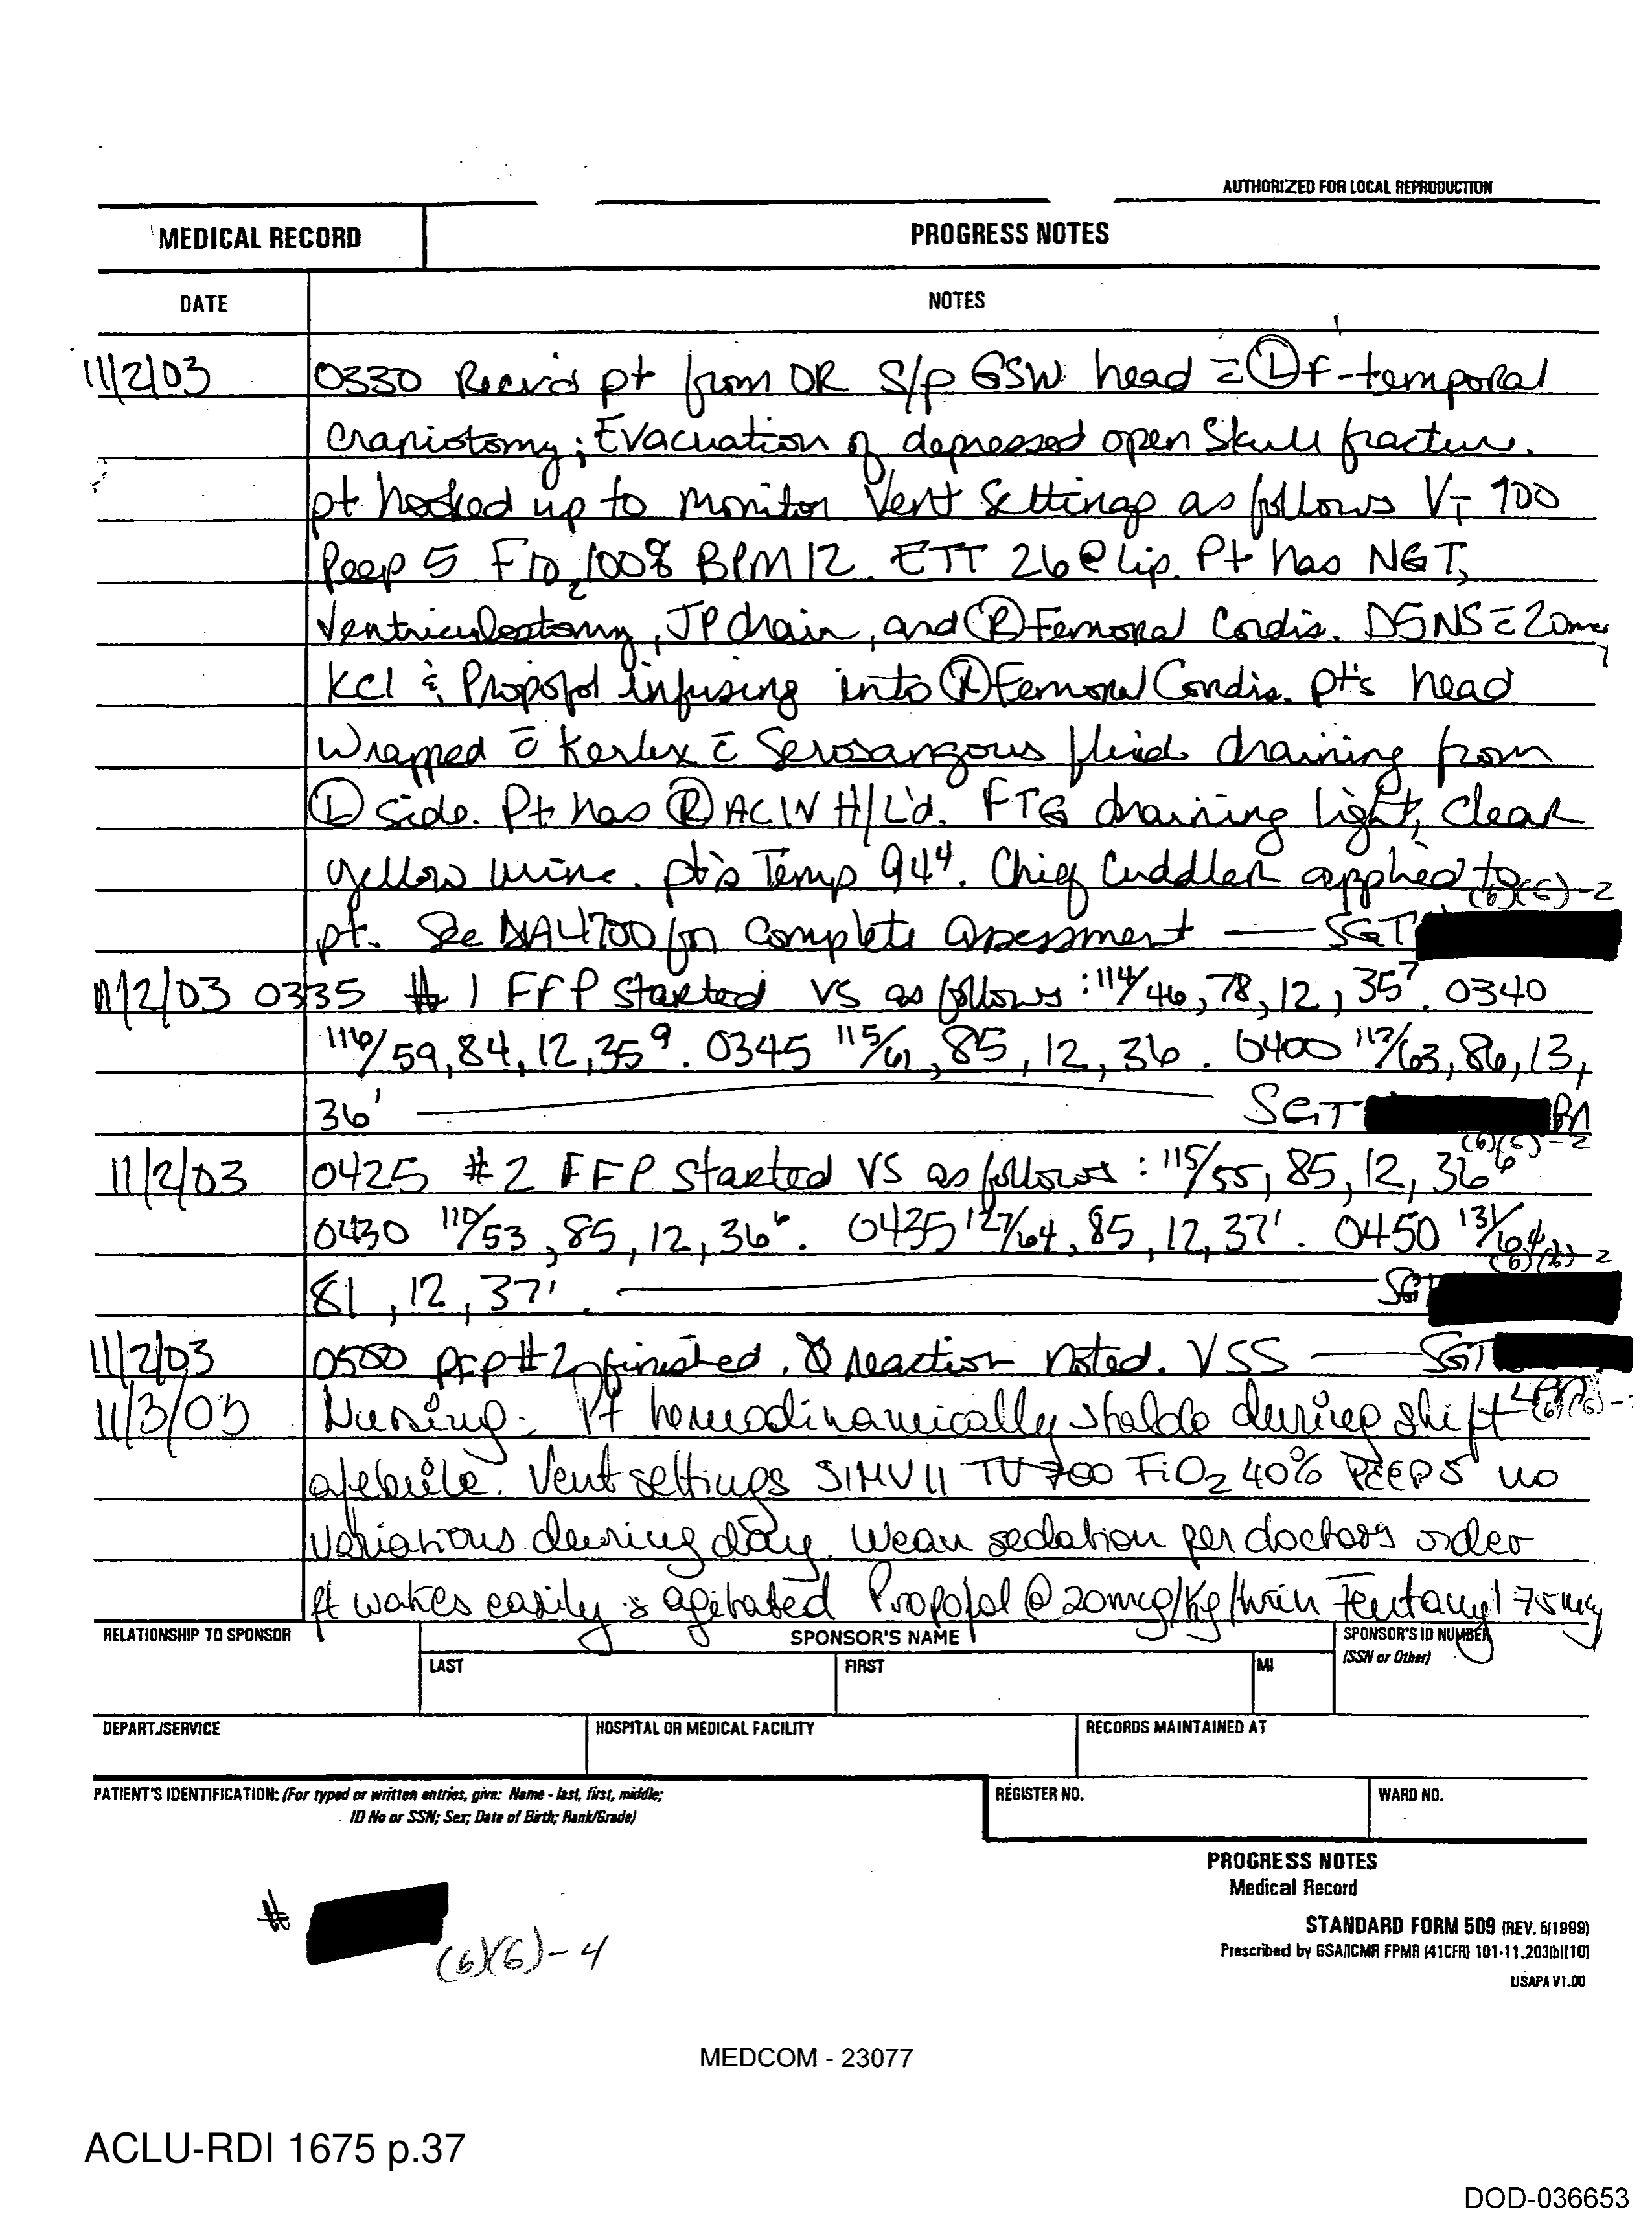 AUTHORIZED FOR LOCAL REPRODUCTION
MEDICAL RECORD
PROGRESS NOTES
DATE
NOTES
11/2/03 0330 Recv'd pt from OR S/p GSW head c̄ Ⓛ f-temporal
Craniotomy; Evacuation of depressed open Skull fracture.
pt hooked up to monitor Vent Settings as follows VT 700
Peep 5 FIO2 100% BPM 12. ETT 26 @ Lip. Pt has NGT,
Ventriculostomy, JP drain, and Ⓡ Femoral Cordis. D5NS c̄ 20meq
KCl & Propofol infusing into Ⓡ Femoral Cordis. pt's head
Wrapped c̄ Kerlex c̄ Serosangous fluid draining from
Ⓛ side. Pt has Ⓡ AC IV H/L'd. FTG draining light, clear
yellow urine. pt's Temp 94⁴. Chief Cuddler applied to
(6)(6)-2
pt. See DA4700 for Complete assessment — SGT
11/2/03 0335 #1 FFP Started VS as follows: 114/46, 78, 12, 35⁷. 0340
116/59, 84, 12, 35⁹. 0345 115/61, 85, 12, 36. 0400 117/63, 86, 13,
36¹ — SGT
(6)(6)-2
11/2/03 0425 #2 FFP Started VS as follows: 115/55, 85, 12, 36⁶
0430 110/53, 85, 12, 36⁶. 0435 127/64, 85, 12, 37¹. 0450 131/64
(6)(6)-2
81, 12, 37¹. — SGT
11/2/03 0500 FFP #2 finished. Ø reaction noted. VSS — SGT
11/3/03 Nursing: Pt hemodinamically stable during shift
(6)(6)-
afebrile. Vent settings SIMV 11 TV 700 FiO2 40% PEEP 5 no
variations during day. Wean sedation per doctors order
Pt wakes easily & agitated Propofol @ 20mcg/kg/min Fentanyl 75mcg
RELATIONSHIP TO SPONSOR
SPONSOR'S NAME
SPONSOR'S ID NUMBER
(SSN or Other)
LAST
FIRST
MI
DEPART./SERVICE
HOSPITAL OR MEDICAL FACILITY
RECORDS MAINTAINED AT
PATIENT'S IDENTIFICATION: (For typed or written entries, give: Name - last, first, middle;
ID No or SSN; Sex; Date of Birth; Rank/Grade)
REGISTER NO.
WARD NO.
PROGRESS NOTES
Medical Record
STANDARD FORM 509 (REV. 5/1999)
Prescribed by GSA/ICMR FPMR (41CFR) 101-11.203(b)(10)
USAPA V1.00
#
(6)(6)-4
MEDCOM - 23077
ACLU-RDI 1675 p.37
DOD-036653